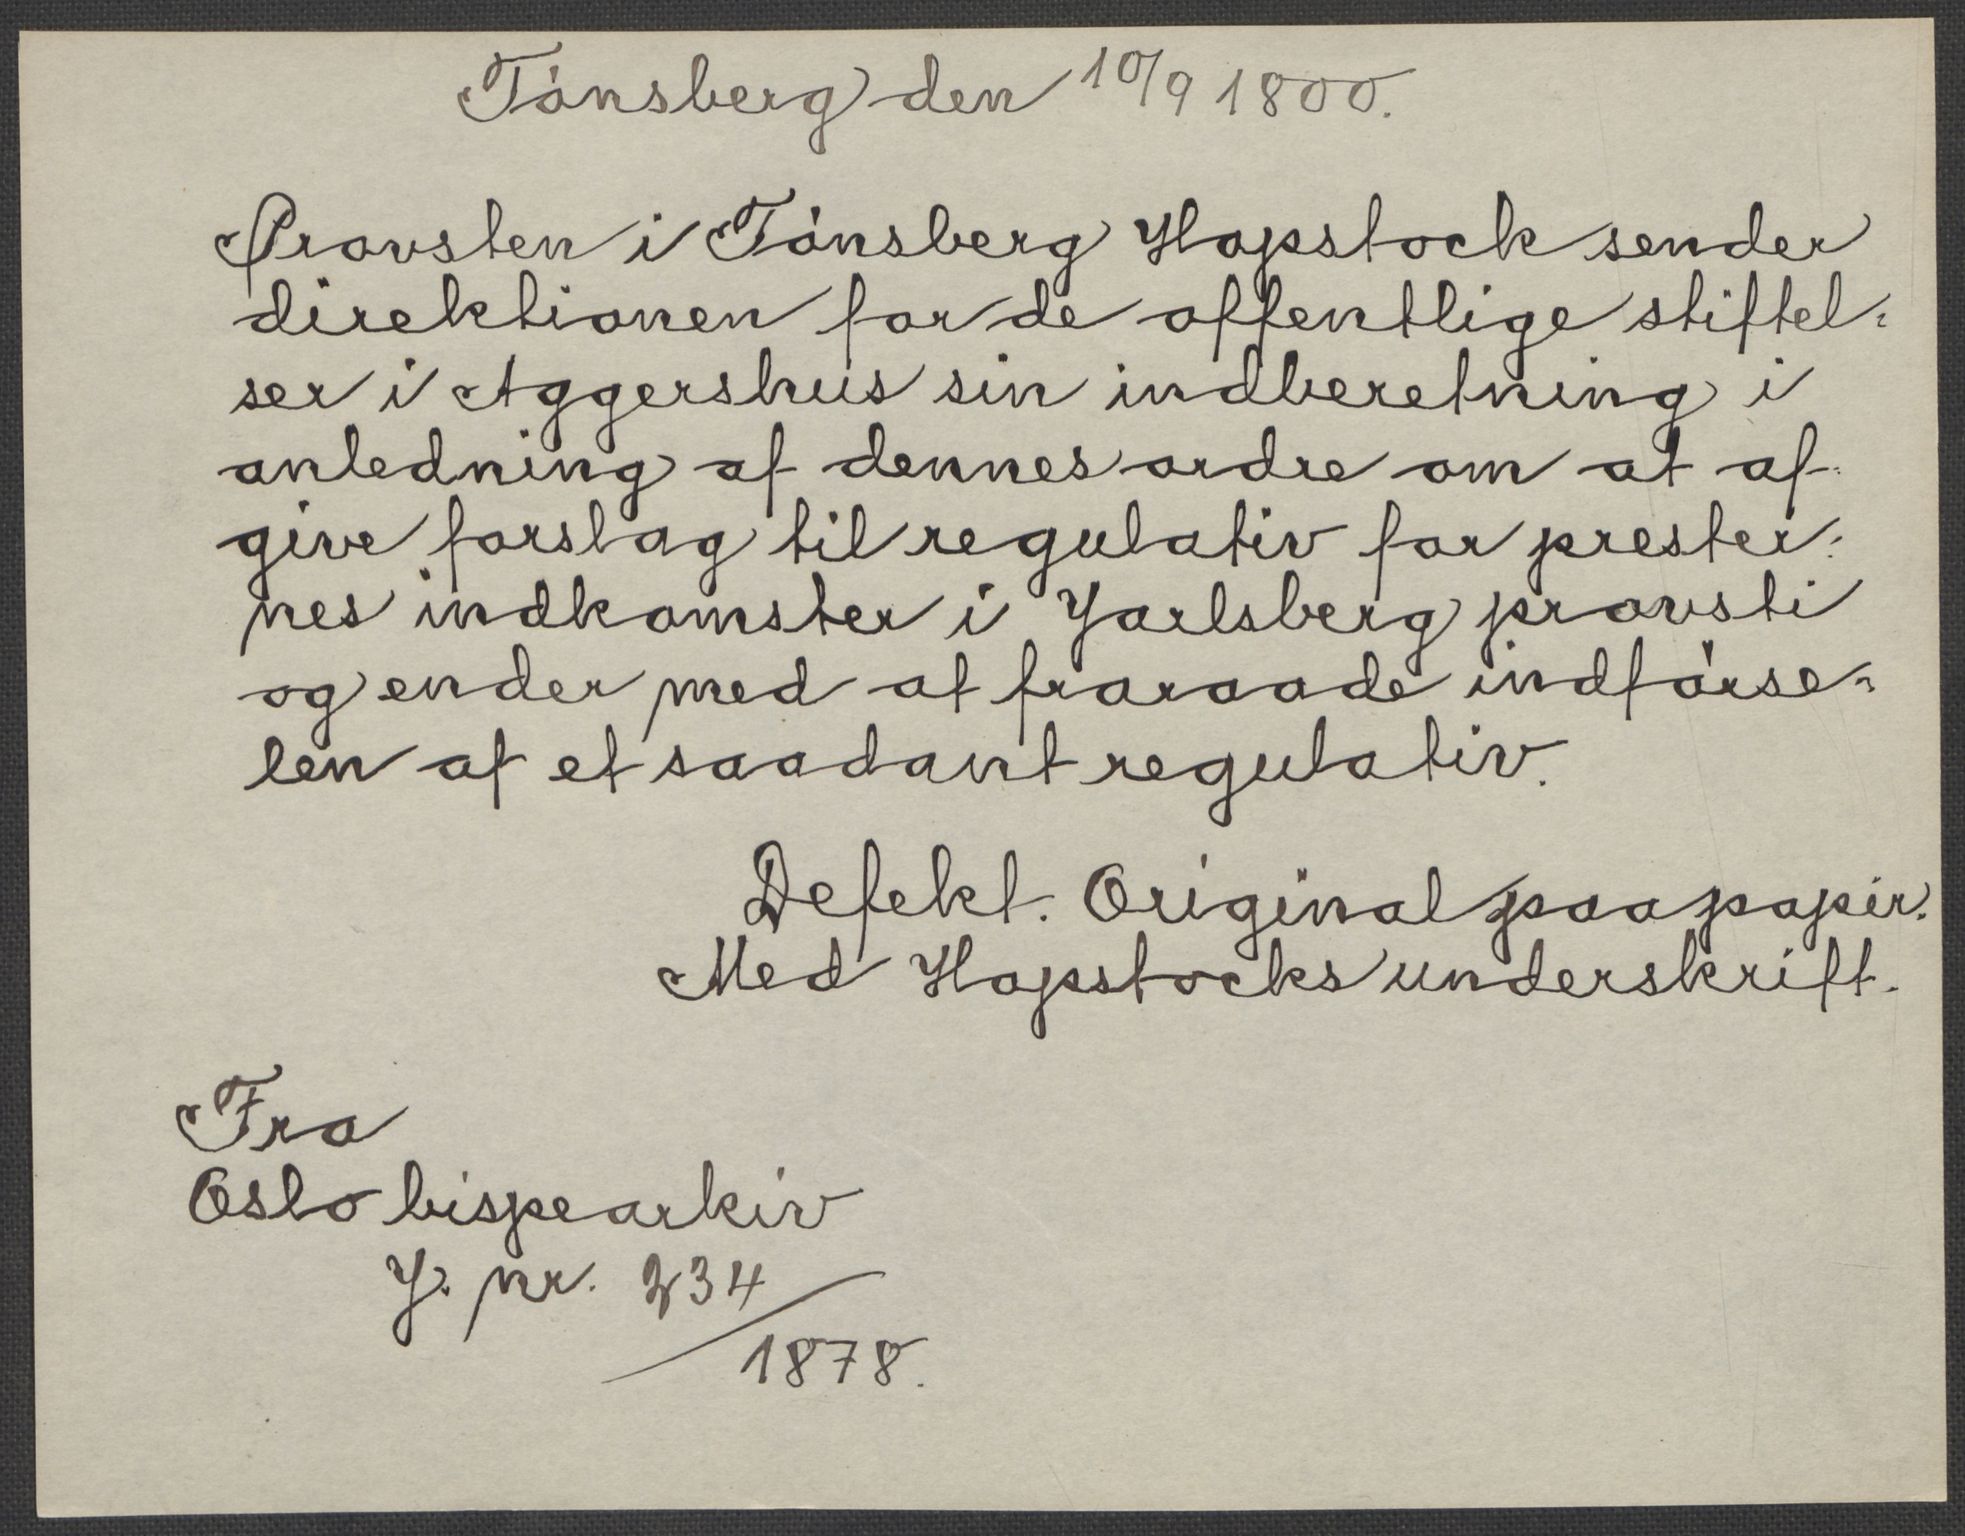 Tónsberg den 10/9 1800.
Provsten i Tónsberg Hopstock sender
direktionen for de offentlige stiftel=
ser i Aggershus sin indberetning i
anledning af dennes ordre om at af=
give forslag til regulativ for prester=
nes indkomster i Jarlsberg provsti
og ender med at fraraade indfórse=
len af et saadant regulativ.
Defekt. Original paa papir.
Med Hopstocks underskrift.
Fra
Oslo bispearkiv
J. nr. 234/
1878.